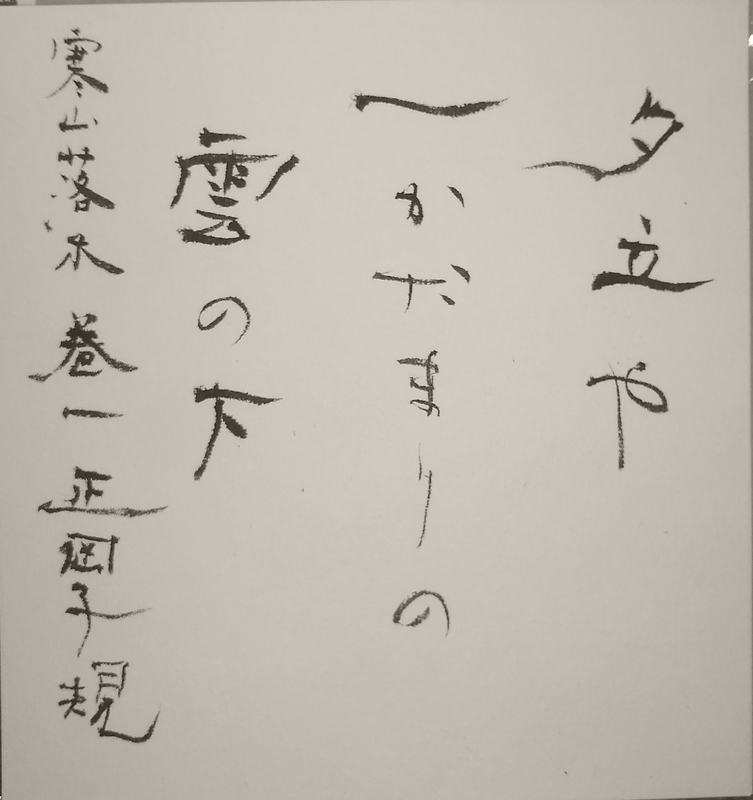 夕立や
一かたまりの
雲の下
寒山落木 巻一 正岡子規